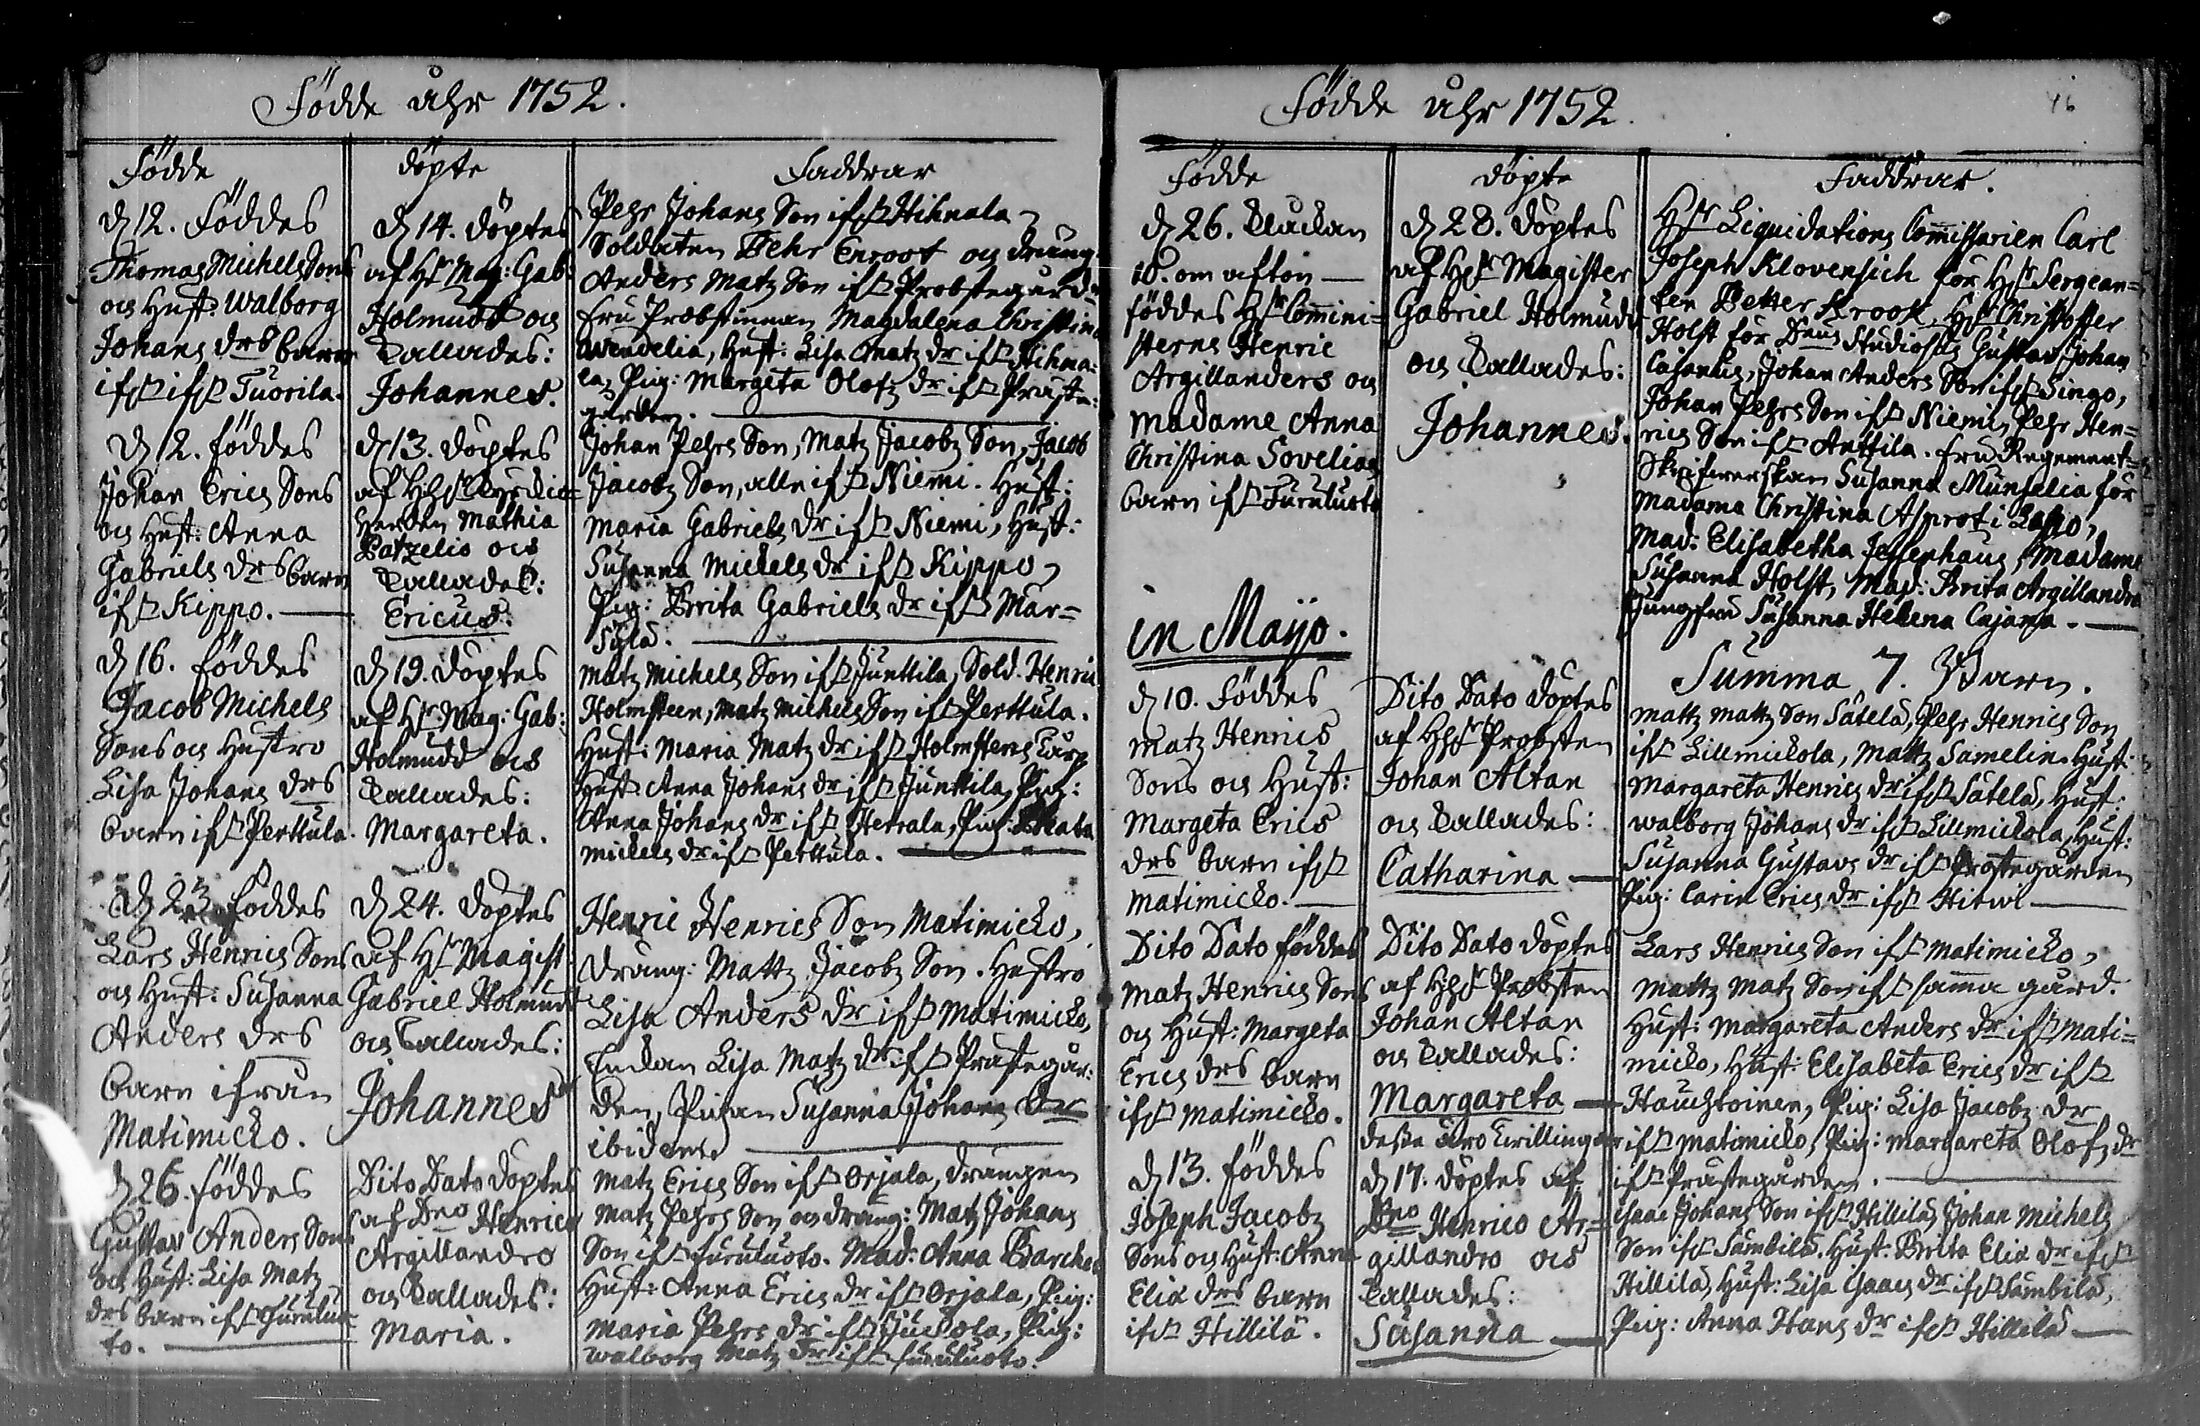 Födde åhr 1752.
Födde
d 12. föddes
Thomas Michels Sons
och Hust: Walborg
Johans drs barn
ifr Tuorila.
d 12. föddes
Johan Erics Sons
och Hust: Anna
Gabriels drs barn
ifr Kippo.
d 16. föddes
Jacob Michels
Sons och Hustro
Lisa Johans drs
barn ifr Perttula.
d 23. föddes
Lars Henrics Sons
och Hust: Susanna
Anders drs
barn ifrån
Matimicko.
d 26. föddes
Gustav Anders Sons
och Hust: Lisa Matz
drs barn ifr Furuluo-
to.
döpte
d 14. döptes
af Hr Mag: Gab:
Holmudd och
Kallades:
Johannes.
d 13. döptes
af
Mathia
Patzelio och
Kallades:
Ericus.
d 19. döptes
af Hr Mag: Gab:
Holmudd och
Kallades:
Margareta.
d 24. döptes
af Hr Magist:
Gabriel Holmudd
och Kallades:
Johannes
Dito Dato döptes
af Dno Henrico
Argillandro
och Kallades:
Maria.
Faddrar
Pehr Johans Son ifr Hihnala,
Soldaten Pehr Enroot och dräng
Anders Matz Son ifr Probstegården
Fru Probstinnan Magdalena Christina
Wendelia, Hust: Lisa Matz dr ifr Hihna-
la, Pig: Margeta Olofz dr ifr Präste-
gården.
Johan Pehrs Son, Matz Jacobz Son, Jacob
Jacobz Son, alle ifr Niemi. Hust:
Maria Gabriels dr ifr Niemi, Hust:
Susanna Mickels dr ifr Kippo,
Pig: Brita Gabriels dr ifr Mar-
sylä.
Matz Michels Son ifr Junttila, Sold. Henric
Holmsteen, Matz Michels Son ifr Perttula.
Hust: Maria Matz dr ifr Holmstens torp
Hust: Anna Johans dr ifr Junttila, Pig:
Anna Johans dr ifr Herrala, Pig:
Mickels dr ifr Perttula.
Henric Henrics Son Matimicko,
Dräng: Mattz Jacobz Son. Hustro
Lisa Anders dr ifr Matimicko,
Enckan Lisa Matz dr ifr Prästegår-
den, Pigan Susanna Johans dr
ibidem.
Matz Erics Son ifr Orjala, Drängen
Matz Pehrs Son och dräng: Matz Johans
Son ifr Furuluoto. Mad: Anna Barcher
Hust: Anna Erics dr ifr Orjala, Pig:
Maria Pehrs dr ifr Juckola, Pig:
Walborg Matz dr ifr Furuluoto.
Födde åhr 1752.
46
Födde
d 26. Klåckan
10. om afton
föddes Hr Commini-
sterns Henric
Argillanders och
Madame Anna
Christina Sovelias
barn ifr Furuluoto
in Majo.
d 10. föddes
Matz Henrics
Sons och Hust:
Margeta Erics
drs barn ifr
Matimicko.
Dito Dato föddes
Matz Henrics Sons
och Hust: Margeta
Erics drs barn
ifr Matimicko.
d 13. föddes
Joseph Jacobz
Sons och Hust: Anna
Eliæ drs barn
ifr Hillilä.
döpte
d 28. döptes
af Hr Magister
Gabriel Holmudd
och Kallades:
Johannes.
Dito Dato döptes
af Hr Probsten
Johan Altan
och Kallades:
Catharina
Dito Dato döptes
af Hr Probsten
Johan Altan
och Kallades:
Margareta
desse äro twillingar
d 17. döptes af
Dno Henrico Ar-
gillandro och
Kallades:
Susanna
Faddrar.
Hr Liquidations Commissarien Carl
Joseph Klovensich för Hr Sergean-
ten Petter Krook, Hr Christoffer
Holst för Dnus Studiosus Gustav Johan
Cajanus, Johan Anders Son ifr Singo,
Johan Pehrs Son ifr Niemi, Pehr Hen-
rics Son ifr Anttila. Fru Regements-
Skrifwerskan Susanna Munselia för
Madama Christina Asprot i Lasso,
Mad: Elisabetha Jessenhaus, Madame
Susanna Holst, Mad: Brita Argillandra
Jungfru Susanna Helena Cajana.
Summa 7. Barn.
Mattz Mattz Son Sätelä, Pehr Henrics Son
ifr Lillmickola, Mattz Samelin. Hust:
Margareta Henrics dr ifr Sätelä, Hust:
Walborg Johans dr ifr Lillmickola, Hust:
Susanna Gustavs dr ifr Prästegården
Pig: Carin Erics dr ifr
Lars Henrics Son ifr Matimicko,
Mattz Matz Son ifr samma gård.
Hust: Margareta Anders dr ifr Mati-
micko, Hust: Elisabeta Erics dr ifr
Hauchtoinen, Pig: Lisa Jacobz dr
ifr Matimicko, Pig: Margareta Olofz dr
ifr Prästegården.
Isaac Johans Son ifr Hillilä, Johan Michels
Son ifr Sämbilä. Hust: Brita Eliæ dr ifr
Hillilä, Hust: Lisa Isaacs dr ifr Sämbilä,
Pig: Anna Hans dr ifr Hillilä